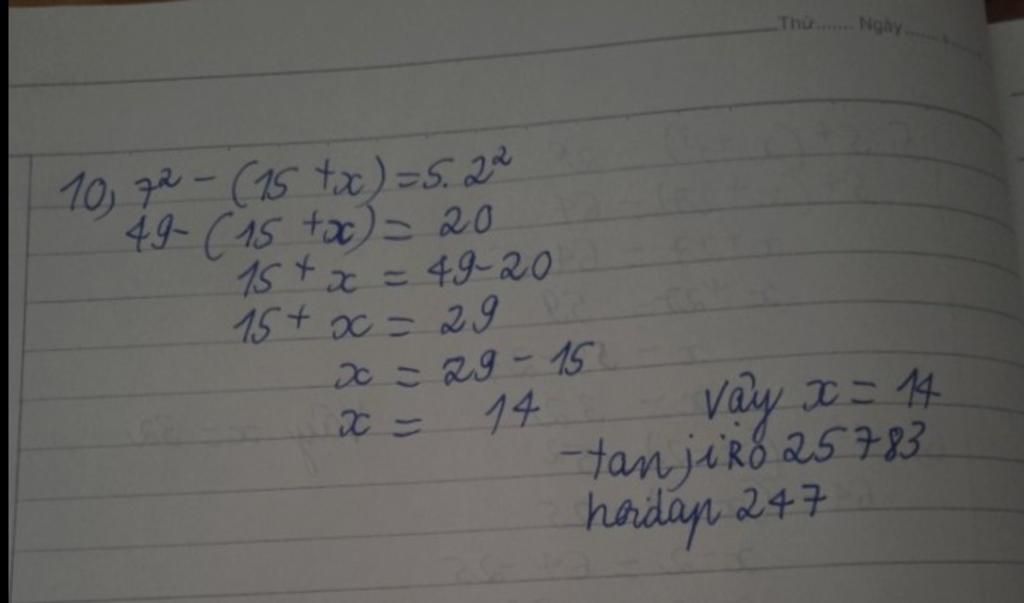 Thứ....... Ngày.............
10, 7² - (15 + x) = 5.2²
49 - (15 + x) = 20
15 + x = 49 - 20
15 + x = 29
x = 29 - 15
x = 14
Vậy x = 14
-tanjiro 25783
hoidap 247